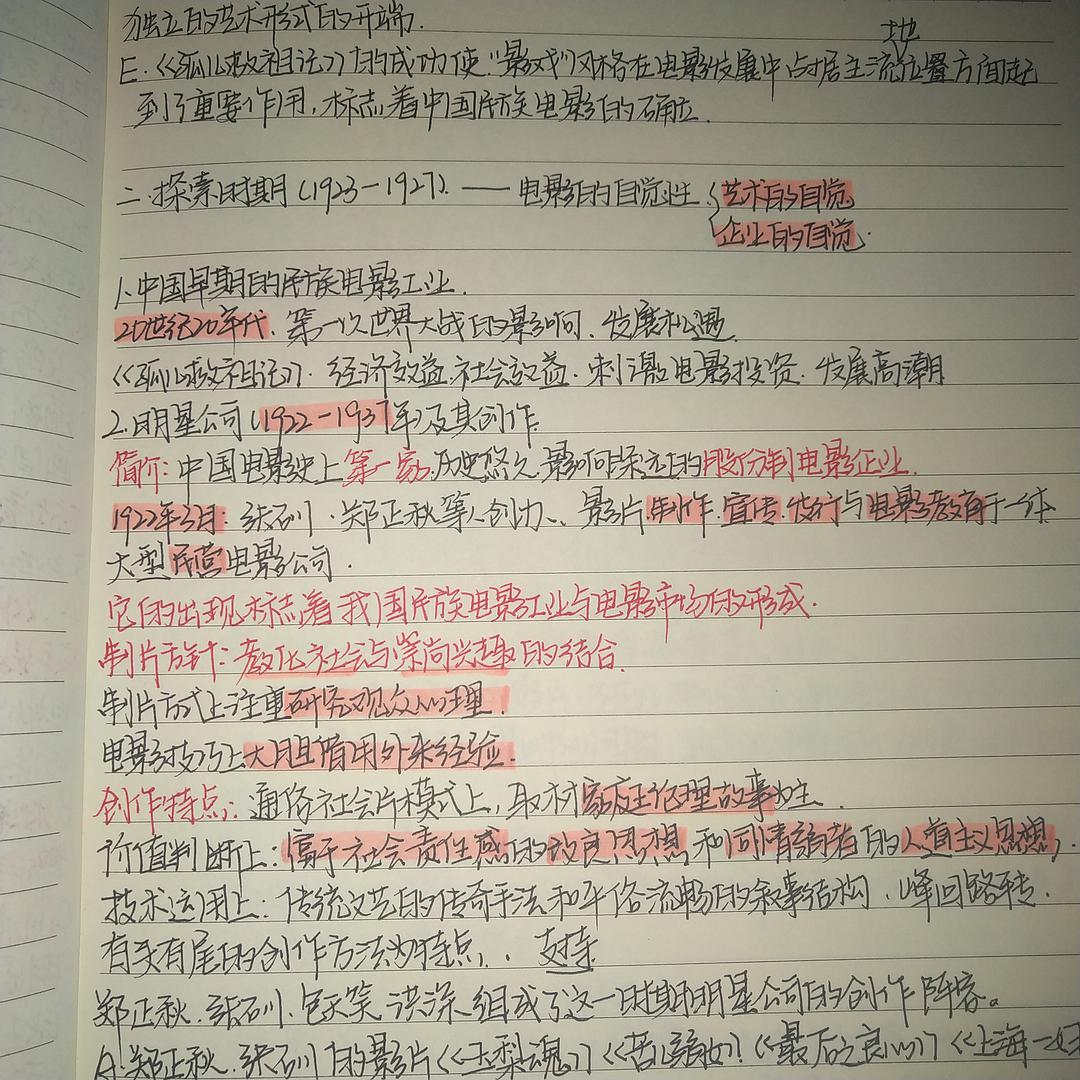 独立的艺术形式的开端.
地
E.《孤儿救祖记》的成功使"影戏"风格在电影发展中占据主流位置方面起
到了重要作用,标志着中国民族电影的确立.
二.探索时期(1923-1927).——电影的自觉性{艺术的自觉
企业的自觉.
1.中国早期的民族电影工业.
20世纪20年代.第一次世界大战的影响.发展机遇
《孤儿救祖记》.经济效益.社会效益.刺激电影投资.发展高潮
2.明星公司(1922-1937年)及其创作.
简介:中国电影史上第一家.历史悠久.影响深远的股份制电影企业.
1922年3月:张石川.郑正秋等人创办.影片制作.宣传.发行与电影教育于一体
大型民营电影公司.
它的出现标志着我国民族电影工业与电影市场的形成.
制片方针:教化社会与崇尚兴趣的结合.
制片方式上注重研究观众心理.
电影技巧上大胆借用外来经验.
创作特点:通俗社会片模式上,取材家庭伦理故事为主.
价值判断上:富于社会责任感的改良思想和同情弱者的人道主义思想.
技术运用上:传统文艺的传奇手法和平俗流畅的叙事结构.峰回路转.
有头有尾的创作方法为特点.支持
郑正秋.张石川.包天笑.洪深组成了这一时期明星公司的创作阵容。
A.郑正秋.张石川的影片《玉梨魂》《苦儿弱女》《最后之良心》《上海一妇